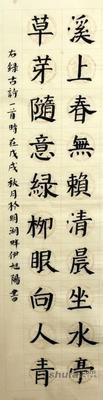 溪上春無賴清晨坐水亭
草芽隨意緑柳眼向人青
右錄古詩一首時在戊戌秋月於明湖畔伊旭陽書